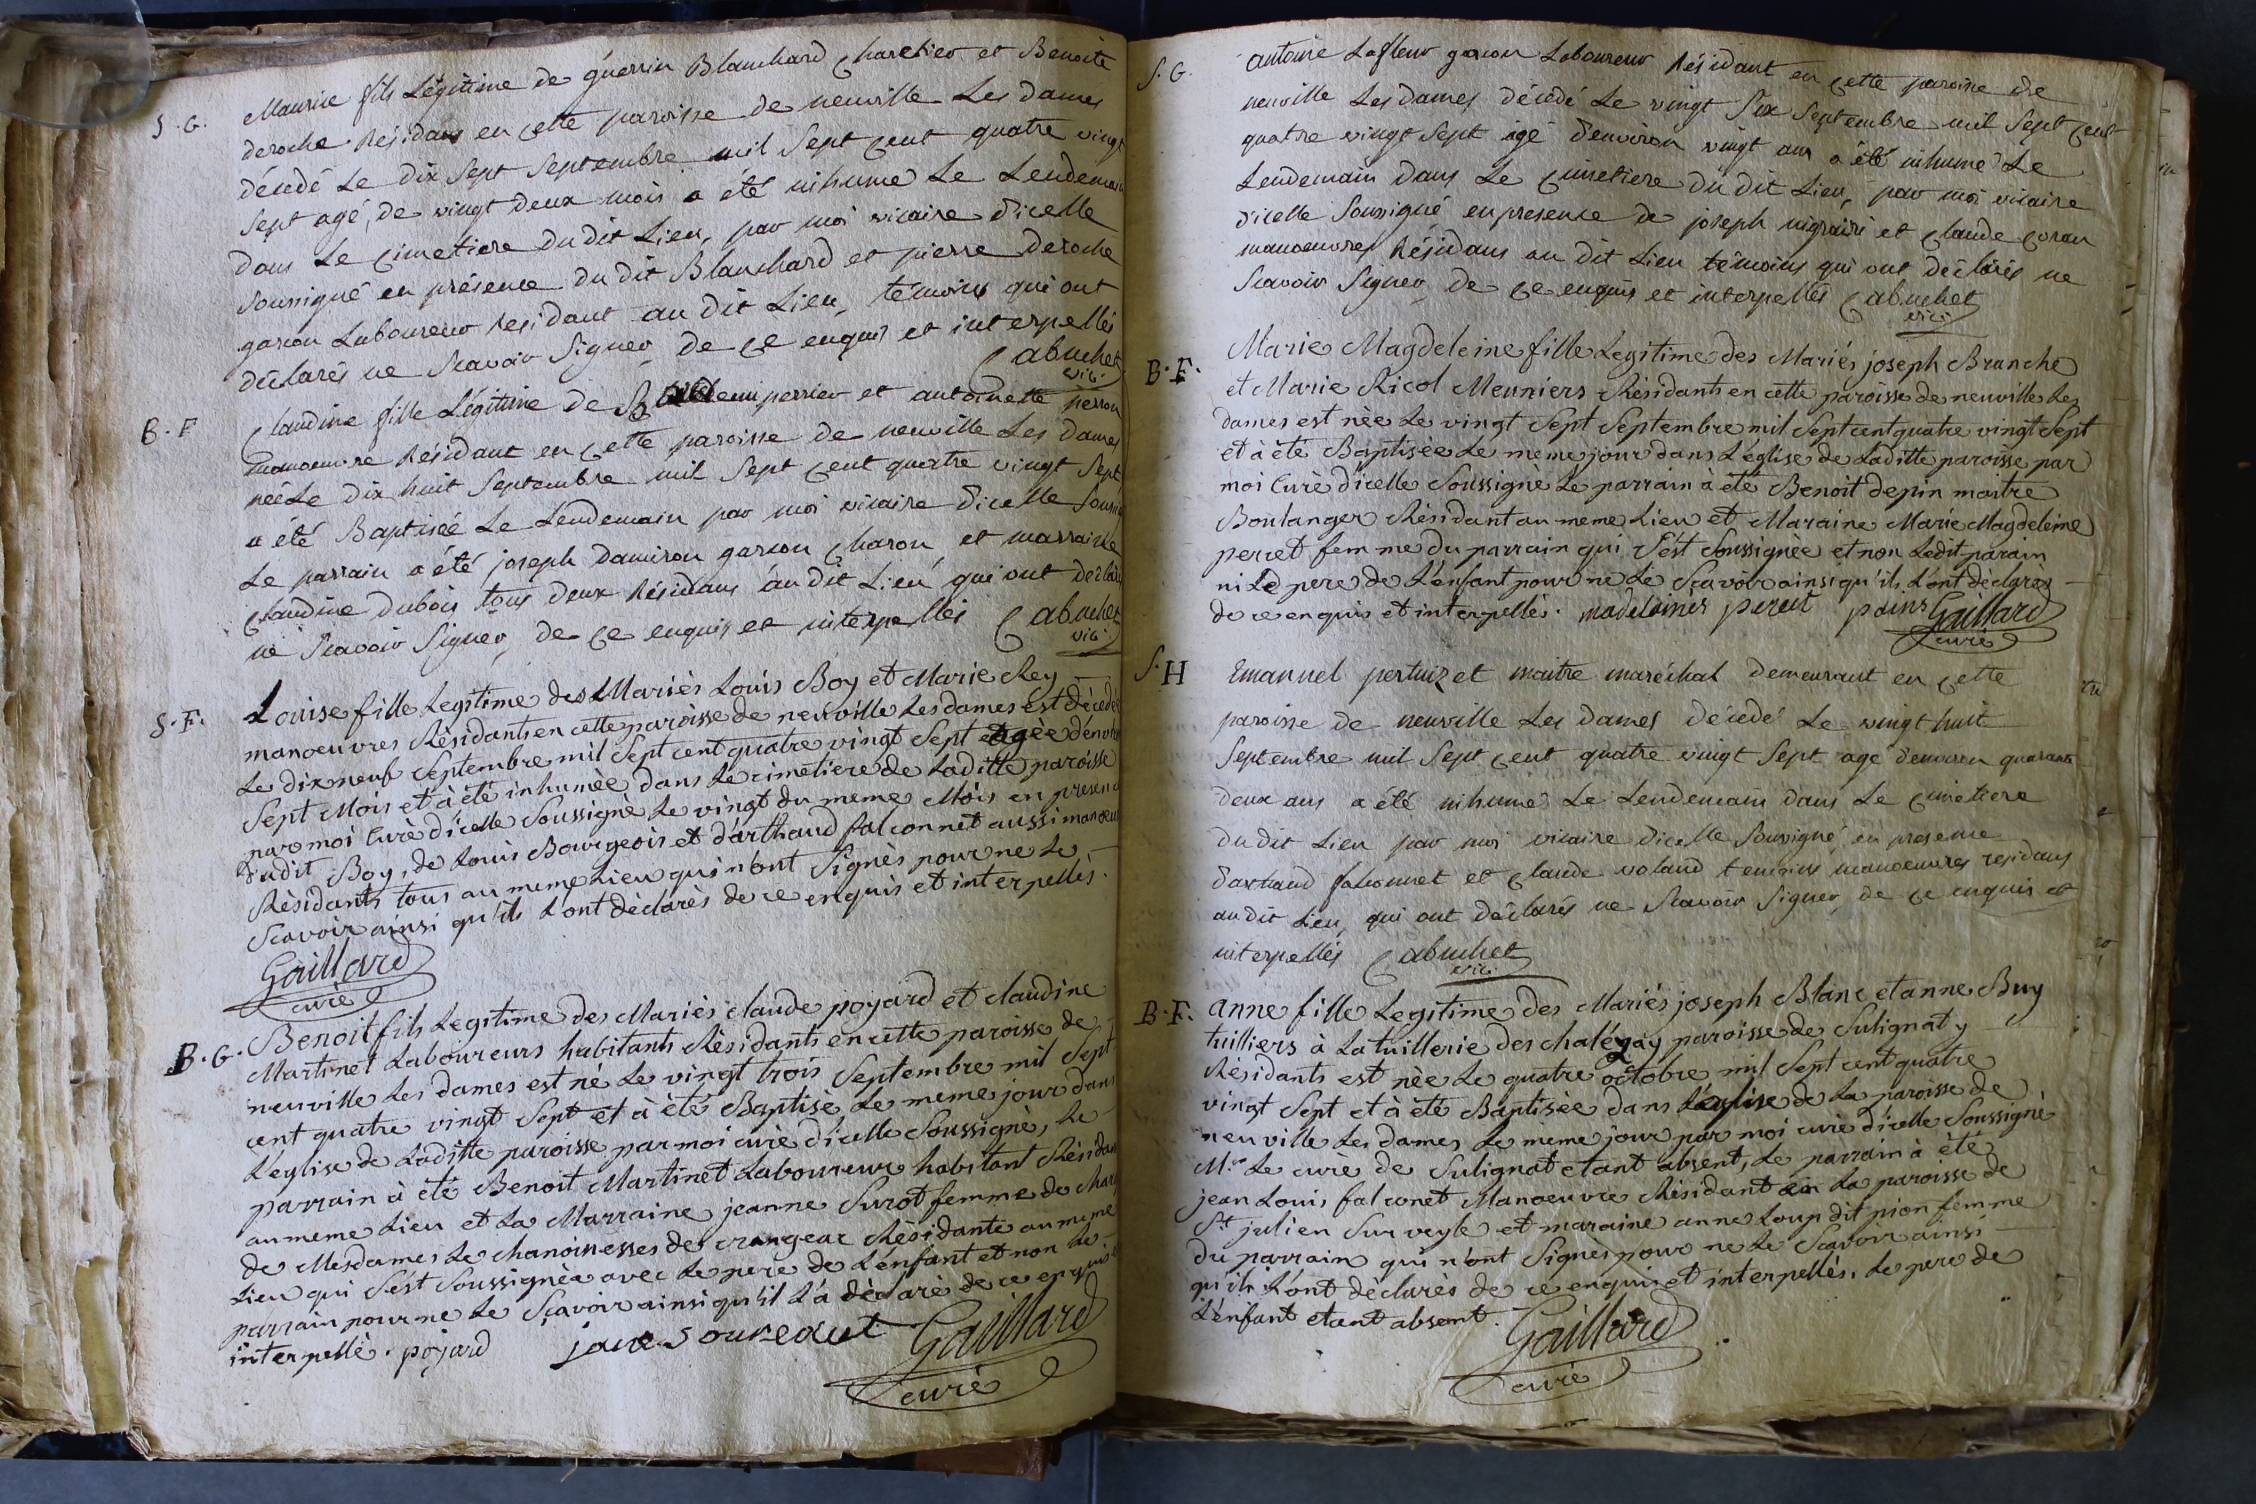 S. G.
Maurice fils Légitime de guerrin Blanchard Charetier et Benoite
deroche Résidans en cette paroisse de neuville Les dames
décédé Le dix sept Septembre mil Sept cent quatre vingt
Sept agé, de vingt deux mois a été inhumé Le Lendemain
dans Le cimetiere du dit Lieu, par moi vicaire d'icelle
Soussigné en présence du dit Blanchard et pierre deroche
garcon Laboureur residant au dit Lieu, témoins qui ont
déclarés ne Scavoir Signer, de ce enquis et interpellés
Cabuchet
vic.
B. F
Claudine fille Légitime de perrier et antoinette perron
manoeuvre Résidant en cette paroisse de neuville Les dames
née Le dix huit Septembre mil Sept cent quatre vingt Sept
a été Baptisée Le Lendemain par moi vicaire d'icelle
Le parrain a été joseph damiron garcon charon, et marraine
claudine dubois tous deux Résidans au dit Lieu qui ont
ne Scavoir Signer, de ce enquis et interpellés Cabuchet
vic.
S. F.
Louise fille Legitime des Mariés Louis Boy et Marie Rey
manoeuvres Rèsidants en cette paroisse de neuville Les dames est décedée
Le dix neuf Septembre mil Sept cent quatre vingt Sept agèe
Sept Mois et à ètè inhumèe dans Le cimetiere de Laditte paroisse
par moi Curè d'icelle Soussignè Le vingt du meme Mois en
dudit Boy, de Louis Bourgeois et d'arthaud falconnet aussi
Rèsidants tous au meme Lieu qui n'ont Signès pour ne Le
Scavoir ainsi qu'ils L'ont dèclarès de ce enquis et interpellès.
Gaillard
curè
B. G.
Benoit fils Legitime des Mariés claude poyard et claudine
Martinet Laboureurs habitants Rèsidants en cette paroisse de
neuville Les dames est nè Le vingt trois Septembre mil Sept
cent quatre vingt Sept et à ètè Baptisè Le meme jour dans
L'eglise de Laditte paroisse par moi curè d'icelle Soussignè, Le
parrain à ètè Benoit Martinet Laboureur habitant
au meme Lieu et La Marraine jeanne Surot femme de
de Mesdames Le chanoinesses de Rèsidante au meme
Lieu qui S'est Soussignèe avec Le pere de L'enfant et non Le
parrain pour ne Le Scavoir ainsi qu'il L'à dèclarè de ce enquis
interpellè. poyard Gaillard
curè
S. G.
antoine Lafleur garcon Laboureur Résidant en cette paroisse de
neuville Les dames décédé Le vingt Six Septembre mil Sept cent
quatre vingt Sept agé d'environ vingt ans a été inhumé Le
Lendemain dans Le cimetiere du dit Lieu, par moi vicaire
d'icelle Soussigné en presence de joseph et claude
manoeuvres Résidans au dit Lieu témoins qui ont déclarés ne
Scavoir Signer de ce enquis et interpellés Cabuchet
vic.
B. F.
Marie Magdeleine fille Legitime des Mariés joseph Branche
et Marie Ricol Meuniers Rèsidants en cette paroisse de neuville Les
dames est nèe Le vingt Sept Septembre mil Sept cent quatre vingt Sept
et à ètè Baptisèe Le meme jour dans L'église de Laditte paroisse par
moi Curè d'icelle Soussignè Le parrain à ètè Benoit depin maitre
Boulanger Rèsidant au meme Lieu et Maraine Marie Magdeleine
perret femme du parrain qui S'est Soussignèe et non Ledit parain
ni Le pere de L'enfant pour ne Le Scavoir ainsi qu'ils L'ont dèclarès
de ce enquis et interpellès. Gaillard
curè
S. H
Emanuel pertuizet maitre maréchal demeurant en cette
paroisse de neuville Les dames décedé Le vingt huit
Septembre mil Sept cent quatre vingt Sept agé d'environ quarante
deux ans a été inhumé Le Lendemain dans Le cimetiere
du dit Lieu par moi vicaire d'icelle Soussigné, en presence
d'arthaud falconnet et claude voland temoins manoeuvres residans
au dit Lieu, qui ont déclarés ne Scavoir Signer, de ce enquis et
interpellés Cabuchet
vic.
B. F.
anne fille Legitime des Mariés joseph Blanc et anne Buy
tuilliers à La tuillerie des paroisse de Sulignat y
Rèsidants est nèe Le quatre octobre mil Sept cent quatre
vingt Sept et à ètè Baptisèe dans L'eglise de La paroisse de
neuville Les dames Le meme jour par moi curè d'icelle Soussignè
Mr. Le curè de Sulignat etant absent, Le parrain à ètè
jean Louis falconet Manoeuvre Rèsidant en La paroisse de
St. julien Sur veyle et maraine anne Loup dit pion femme
du parrain qui n'ont Signès pour ne Le Scavoir ainsi
qu'ils L'ont dèclarès de ce enquis et interpellès. Le pere de
L'enfant etant absent.
Gaillard
curè